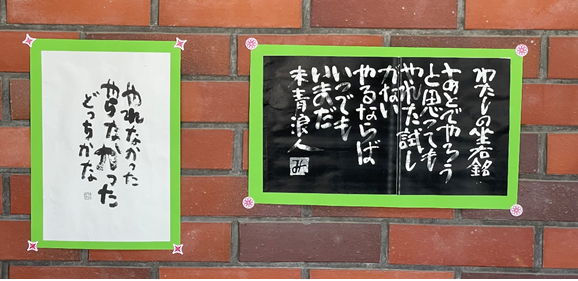 やれなかった
やらなかった
どっちかな
わたしの坐右銘
あとでやろう
と思っても
やれた試し
がない
やるならば
いつでも
いまだ
末青浪人
み